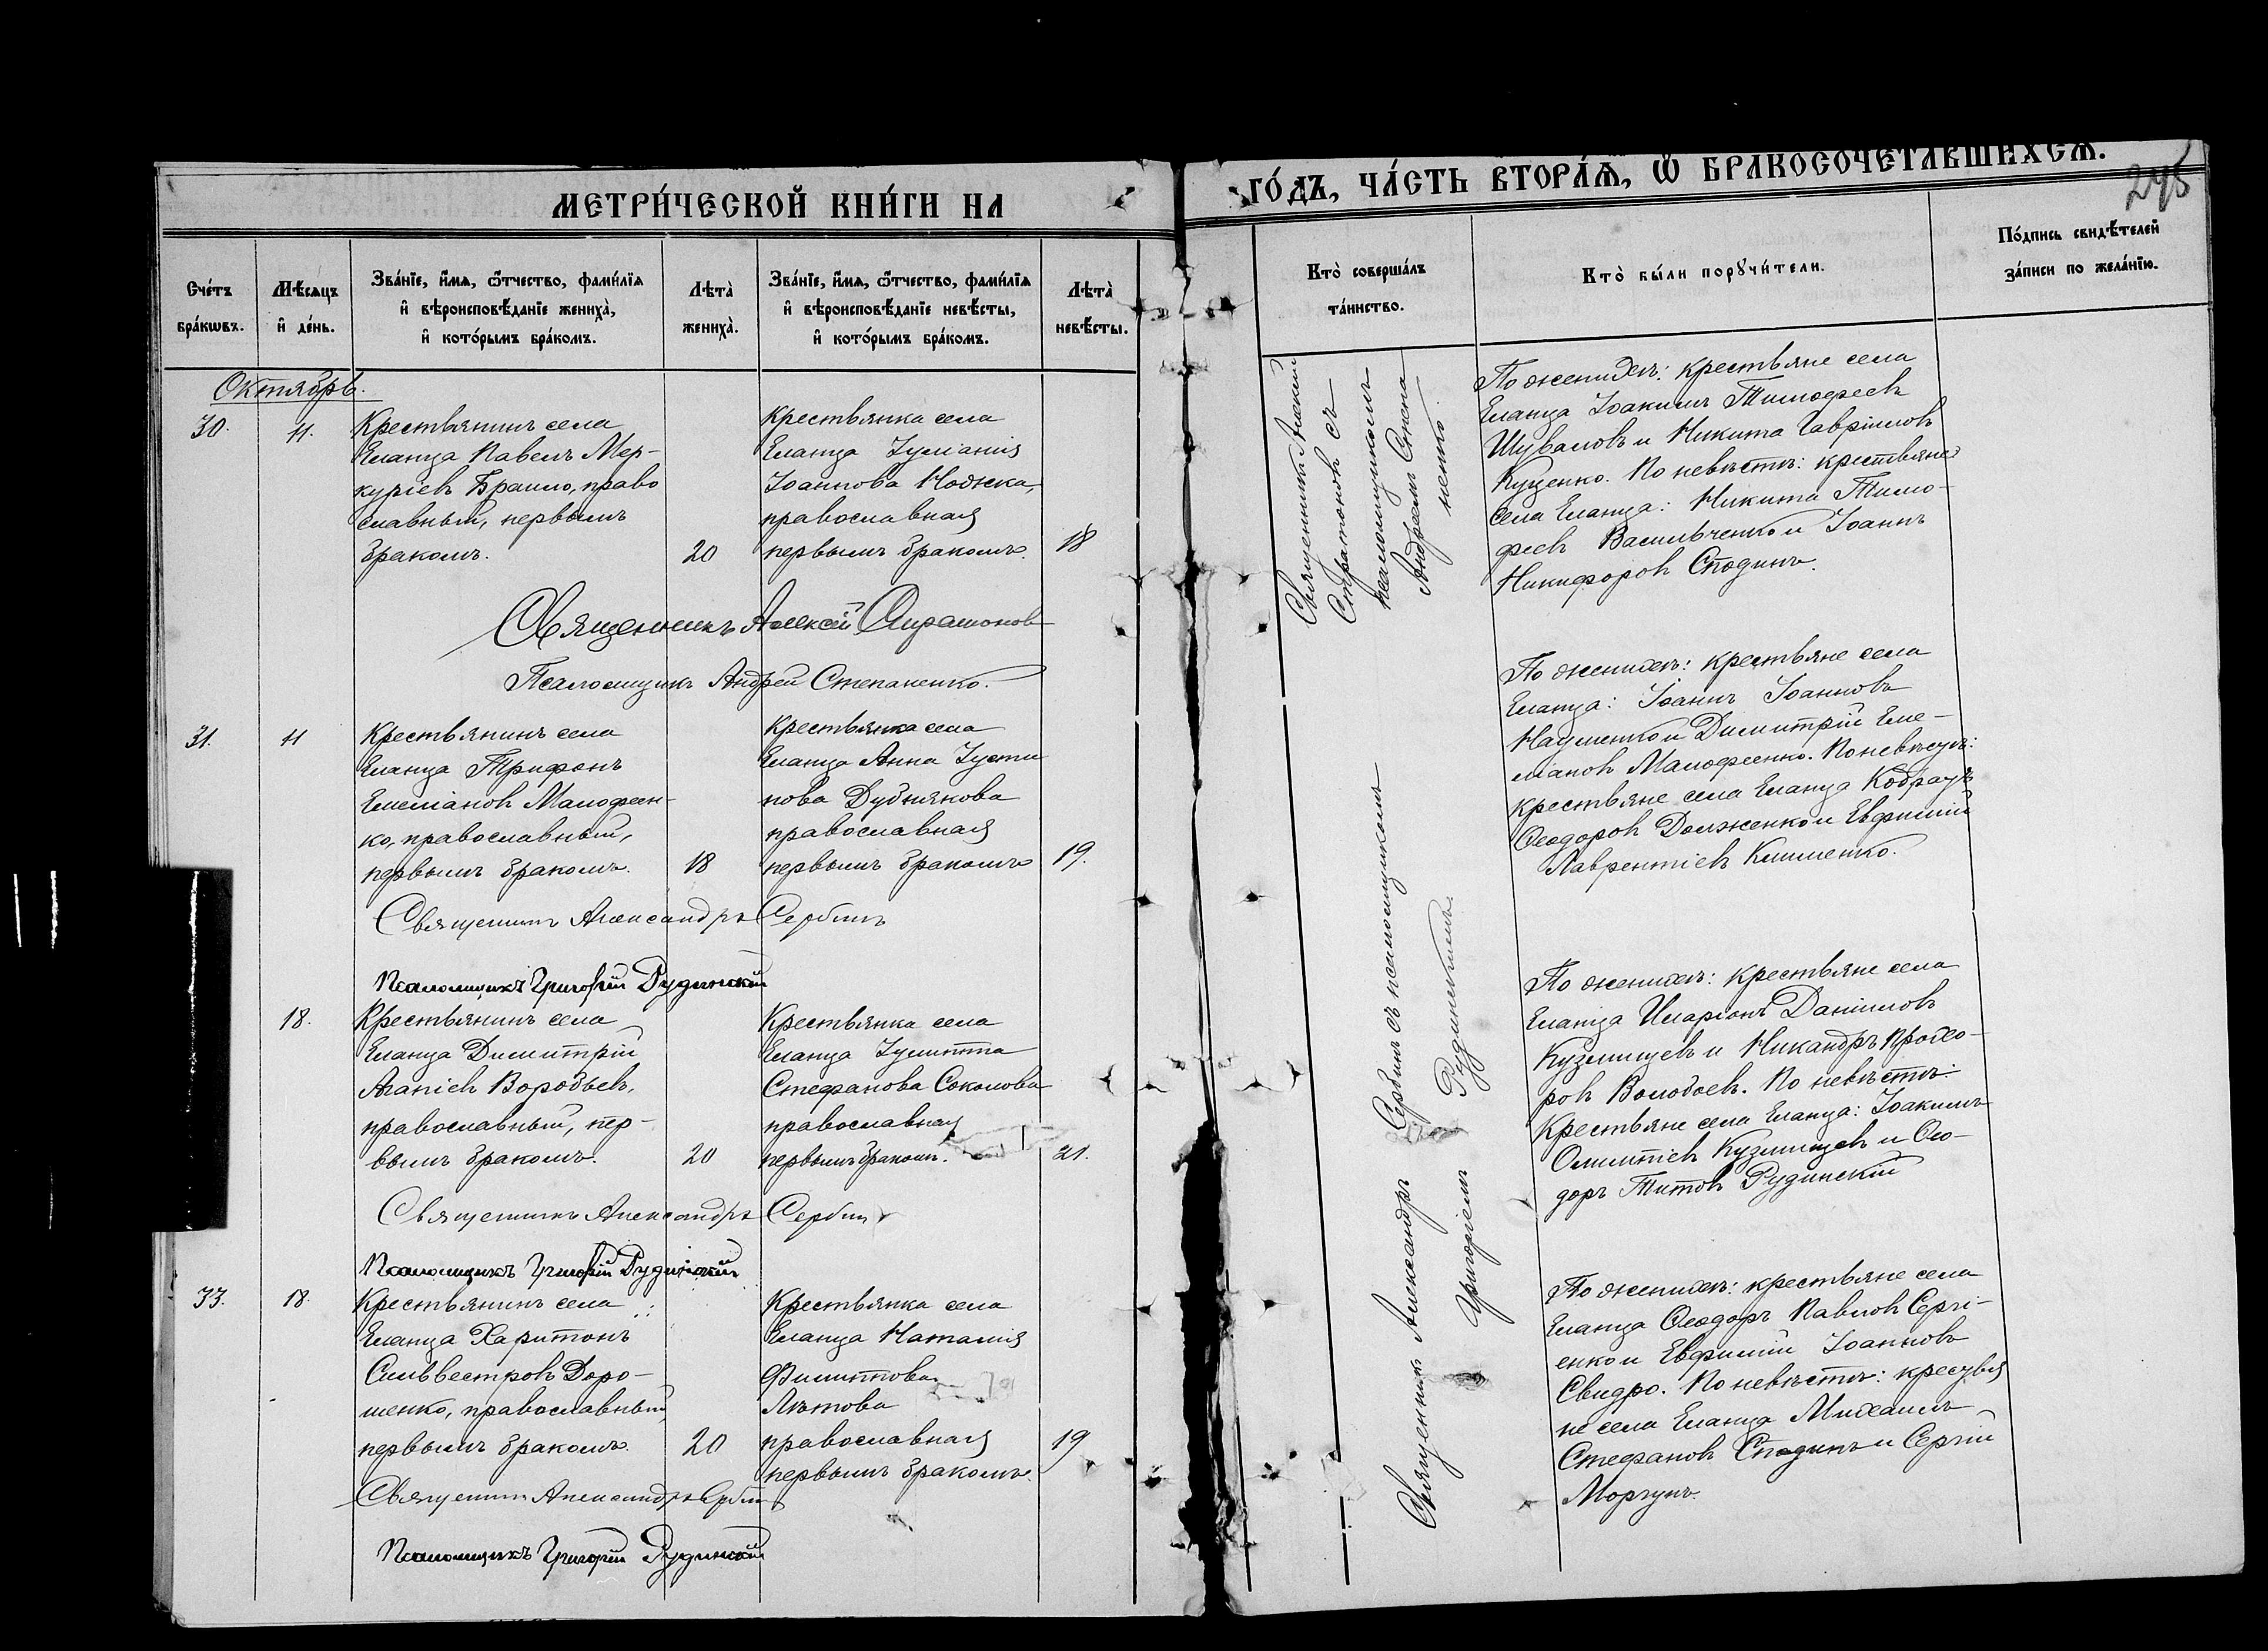 МЕТРИ́ЧЕСКОЙ КНИ́ГИ НА
ГО́ДЪ, ЧА́СТЬ ВТОРА́Ѧ, Ѡ БРАКОСОЧЕТАВШИХСѦ.
245
Сче́тъ бра́кѡвъ.
Мѣ́сѧцъ и҆ де́нь.
Зва́нїе, и҆́мѧ, ѻ҆́тчество, фами́лїѧ
и҆ вѣроисповѣ́данїе жениха̀,
и҆ кото́рымъ бра́комъ.
Лѣта̀ жениха̀.
Зва́нїе, и҆́мѧ, ѻ҆́тчество, фами́лїѧ
и҆ вѣроисповѣ́данїе невѣ́сты,
и҆ кото́рымъ бра́комъ.
Лѣта̀ невѣ́сты.
Кто̀ соверша́лъ та́инство.
Кто̀ бы́ли порꙋчи́тели.
По́дпись свидѣ́телей
за́писи по жела́нїю.
Октябрь.
30.
11.
Крестьянинъ села
Еланца Павелъ Мер-
куріевъ Браило, право
славный, первымъ
бракомъ.
20
Крестьянка села
Еланца Іуліанія
Іоаннова Ножка,
православная
первымъ бракомъ.
18
Священникъ Алексій
съ
псаломщикомъ
Андреемъ Степа
ненко
По женихѣ: крестьяне села
Еланца Іоакимъ Тимофеевъ
Шуваловъ и Никита Гавріиловъ
Куценко. По невѣстѣ: крестьяне
села Еланца: Никита Тимо-
феевъ Васильченко и Іоаннъ
Никифоровъ Сподинъ.
Священникъ Алексій
Псаломщикъ Андрей Степаненко.
31.
11
Крестьянинъ села
Еланца Трифонъ
Емеліановъ Малофеен-
ко, православный,
первымъ бракомъ.
18
Крестьянка села
Еланца Анна Іусти
нова Дубнякова
православная
первымъ бракомъ
19.
По женихѣ: крестьяне села
Еланца: Іоаннъ Іоанновъ
Науменко и Димитрій Еме-
ліановъ Малофеенко. По невѣстѣ:
крестьяне села Еланца Кодратъ
Ѳеодоровъ Долженко и Евфимій
Лаврентіевъ Клименко.
Священникъ Александръ Сербинъ
Псаломщикъ Григорій Рудинскій
18.
Крестьянинъ села
Еланца Димитрій
Агапіевъ Воробьевъ,
православный, пер-
вымъ бракомъ.
20
Крестьянка села
Еланца Іулитта
Стефанова Соколова
православная
первымъ бракомъ.
21.
Священникъ Александръ Сербинъ съ псаломщикомъ
Григоріемъ Рудинскимъ.
По женихѣ: крестьяне села
Еланца Иларіонъ Даніиловъ
Кузмищевъ и Никандръ Прохо-
ровъ Волобоевъ. По невѣстѣ:
Крестьяне села Еланца: Іоакимъ
Кузмищевъ и Ѳео-
доръ Титовъ Рудинскій
Священникъ Александръ Сербинъ
Псаломщикъ Григорій Рудинскій
33.
18.
Крестьянинъ села
Еланца Харитонъ
Сильвестровъ Доро-
шенко, православный,
первымъ бракомъ.
20
Крестьянка села
Еланца Наталія
Филиппова
Лѣтова
православная
первымъ бракомъ.
19
По женихѣ: крестьяне села
Еланца Ѳеодоръ Павловъ Сергі-
енко и Евфимій Іоанновъ
Свидро. По невѣстѣ: крестья
не села Еланца Михаилъ
Стефановъ Сподинъ и Сергій
Моргунъ.
Священникъ Александръ Сербинъ
Псаломщикъ Григорій Рудинскій